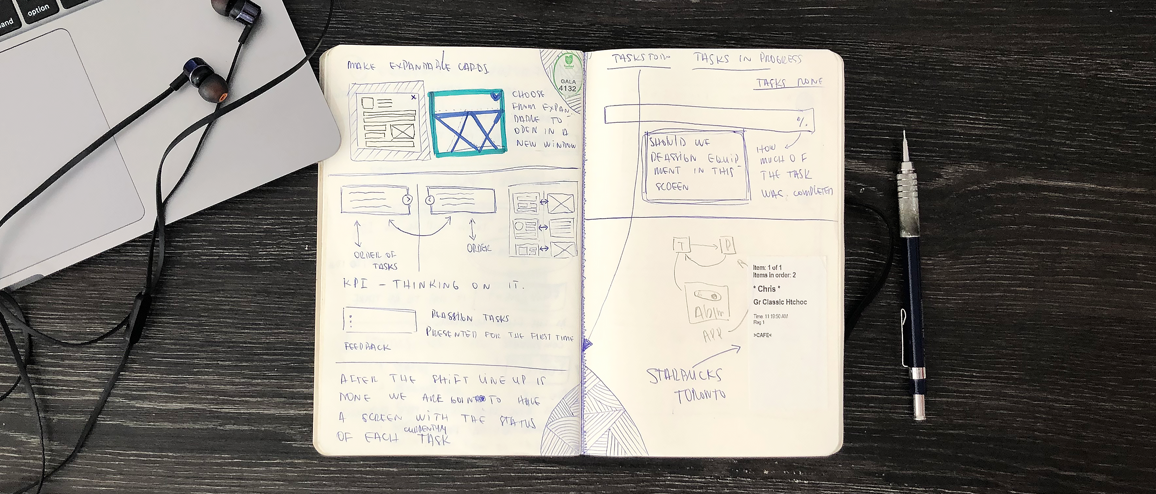 option
MAKE EXPANDABLE CARDS
GALA
4132
CHOOSE
FROM EXPAN-
DABLE TO
OPEN IN A
NEW WINDOW
ORDER OF
TASKS
ORDER
KPI - THINKING ON IT.
REASSIGN TASKS
PRESENTED FOR THE FIRST TIME
FEEDBACK
AFTER THE SHIFT LINE UP IS
DONE WE ARE GOING TO HAVE
A SCREEN WITH THE STATUS
CURRENTLY
OF EACH TASK
TASKS IN PROGRESS
TASKS DONE
%
SHOULD WE
REASSIGN EQUIP-
MENT IN THIS
SCREEN
HOW
MUCH OF
THE TASK
WAS COMPLETED
T
P
APP
Item: 1 of 1
Items in order: 2
* Chris *
Gr Classic Htchoc
Reg 1
>CAFE<
STARBUCKS
TORONTO